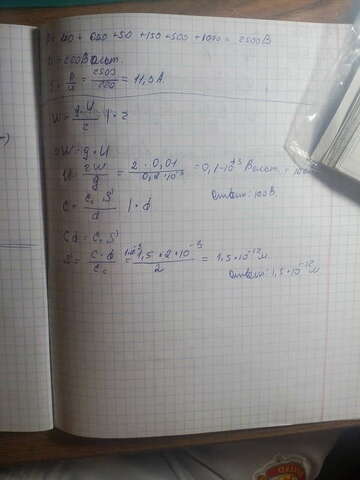 P = 40 + 620 + 50 + 150 + 500 + 1070 = 2500 В
U = 200 Вольт.
I = P/U = 2500/200 = 11,3 А.
W = q·U/2 | · 2
2W = q · U
U = 2W/q = 2 · 0,01/0,2 · 10⁻³ = 0,1 · 10⁺³ Вольт =
Ответ: 100 В.
C = ε₀ S/d | · d
Cd = ε₀ S
S = C · d/ε₀ = 1,5 · 2 · 10⁻³/2 = 1,5 · 10⁻¹² м.
Ответ: 1,5 · 10⁻¹² м